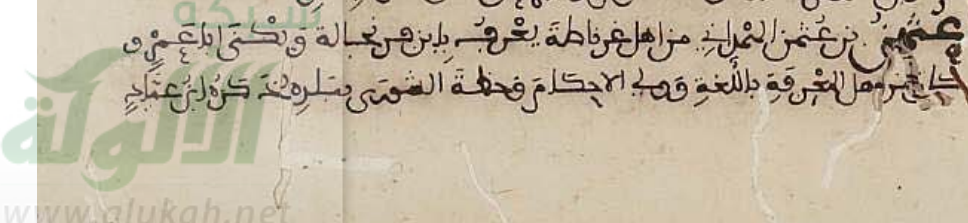 عثمن بن عثمن من اهل غرناطة يعرف بابن وبكنى ابا عمرو
كان من اهل المعرفة باللغة وولي الاحكام وخطة الشورى ببلده ذكره ابن عباد
شبكة
الألوكة
www.alukah.net